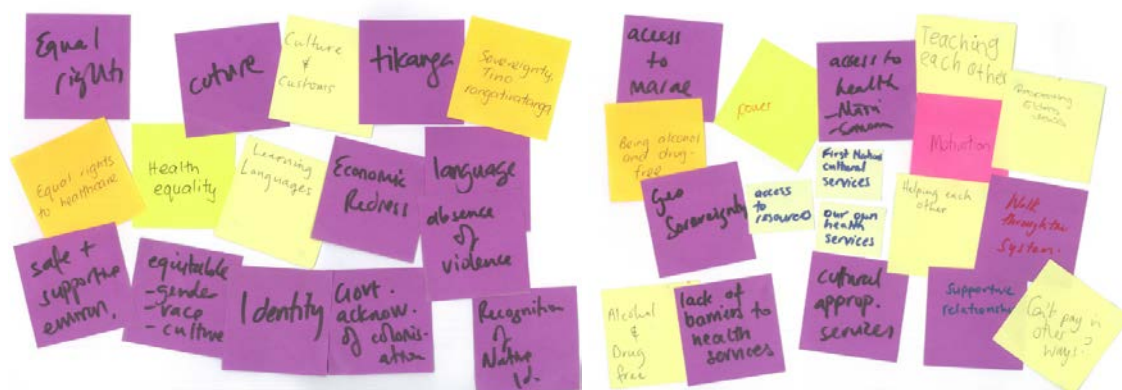 Equal
rights
cuture
Culture
&
Customs
tikanga
Sovereignty,
Tino
rangatiratanga
Equal rights
to healthcare
Health
equality
Learning
Languages
Economic
Redress
language
absence
of
violence
safe +
supportive
environ.
equitable
- gender
- race
- culture
Identity
Govt.
acknow.
of colonis-
ation
Recognition
of
Native
Id.
access
to
marae
power
access to
health
Teaching
each other
Being alcohol
and drug-
free
Motivation
First Nation
cultural
services
Geo
Sovereignty
access
to
resources
our own
health
services
Helping each
other
Walk
through the
System.
Alcohol
&
Drug
free
lack of
barriers to
health
services
cultural
approp.
services
Supportive
relationship
pay in
other
ways.